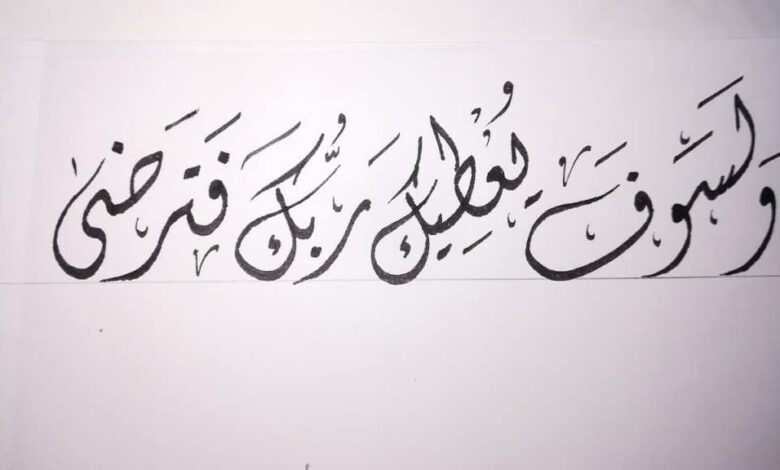 وَلَسَوفَ يُعطِيكَ رَبُّكَ فَتَرَضىٰ